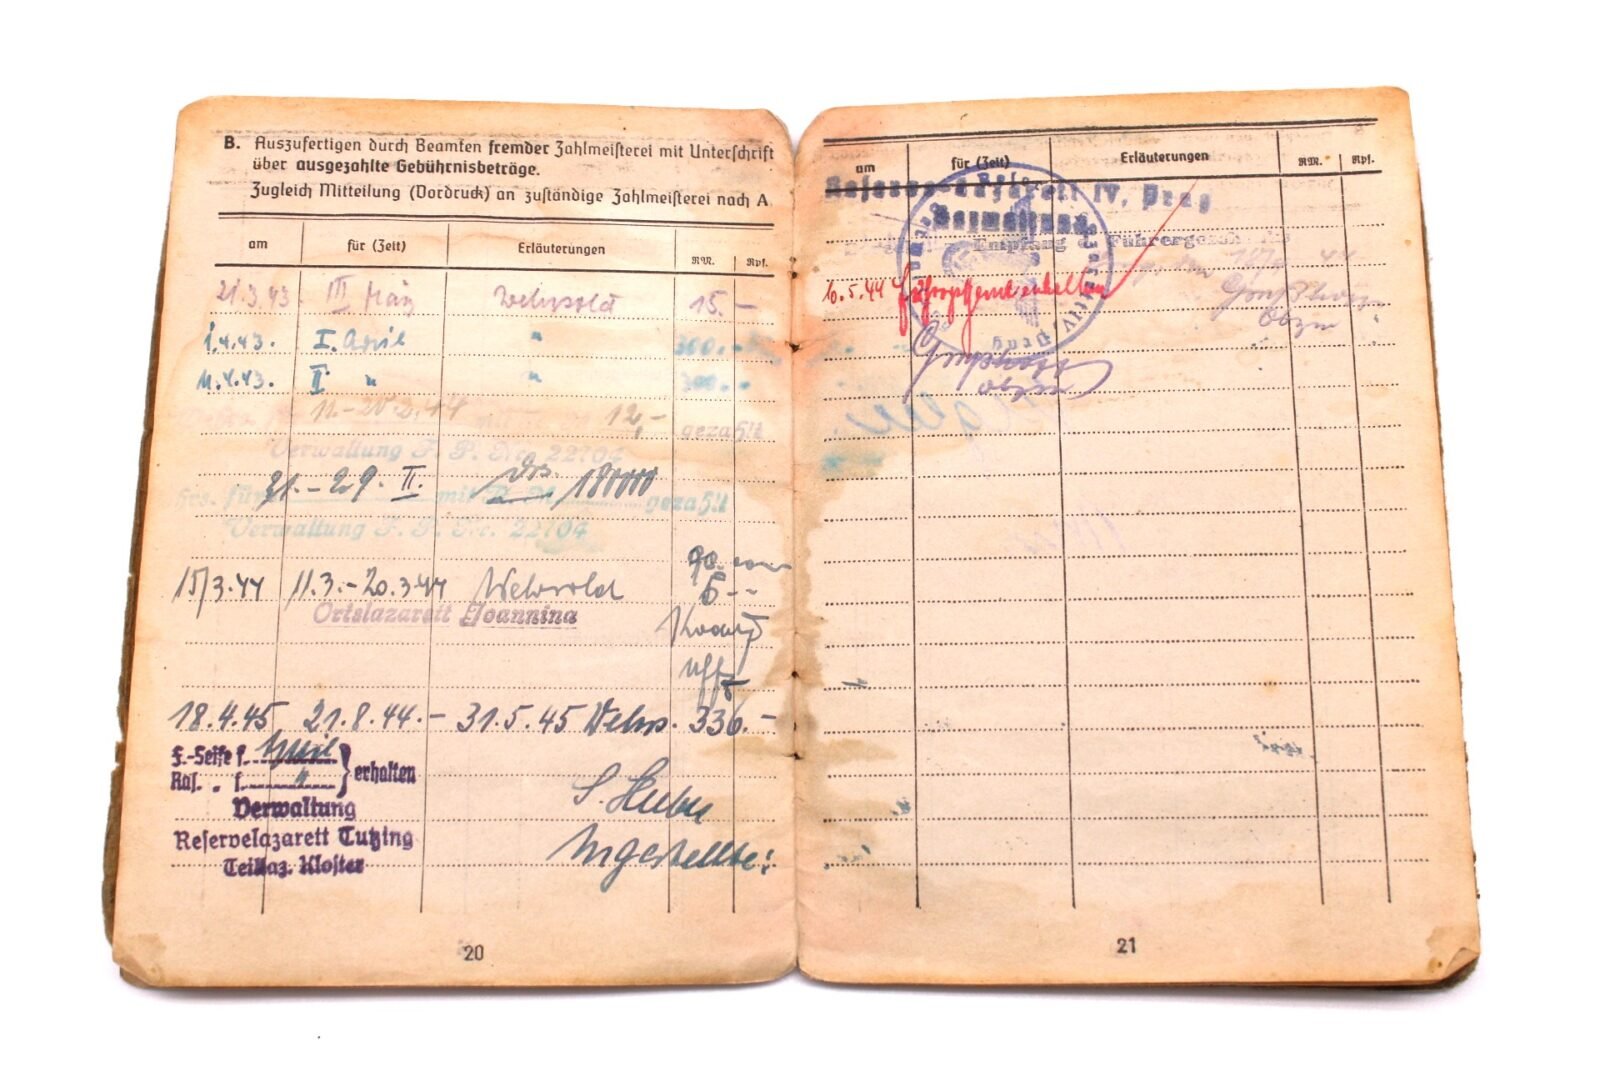 B. Auszufertigen durch Beamten fremder Zahlmeisterei mit Unterschrift
über ausgezahlte Gebührnisbeträge.
Zugleich Mitteilung (Vordruck) an zuständige Zahlmeisterei nach A
am für (Zeit) Erläuterungen RM. Rpf.
21.3.43 III März Wehrsold 15.-
1.4.43. I. April " 300.-
11.4.43. II. " " 300.-
11.-20.2.44 12,- gezahlt
Verwaltung F. P. Nr. 22704
21.-29. II. Drs. 180000
Hrs. für mit R.M. gezahlt
Verwaltung F. P. Nr. 22704
15/3.44 11.3.-20.3.44 Wehrsold
Ortslazarett Joannina
Uffz
18.4.45 21.8.44.- 31.5.45 Wehrs. 336.-
F.-Seife f. April
Ras. " f. " } erhalten
Verwaltung
Reservelazarett Tutzing
Teillaz. Kloster
S. Huber
Angestellte:
20
am für (Zeit) Erläuterungen RM. Rpf.
Reserve-Lazarett IV, Prag
Verwaltung
Empfang Führergeschenk
6.5.44 erhalten
21